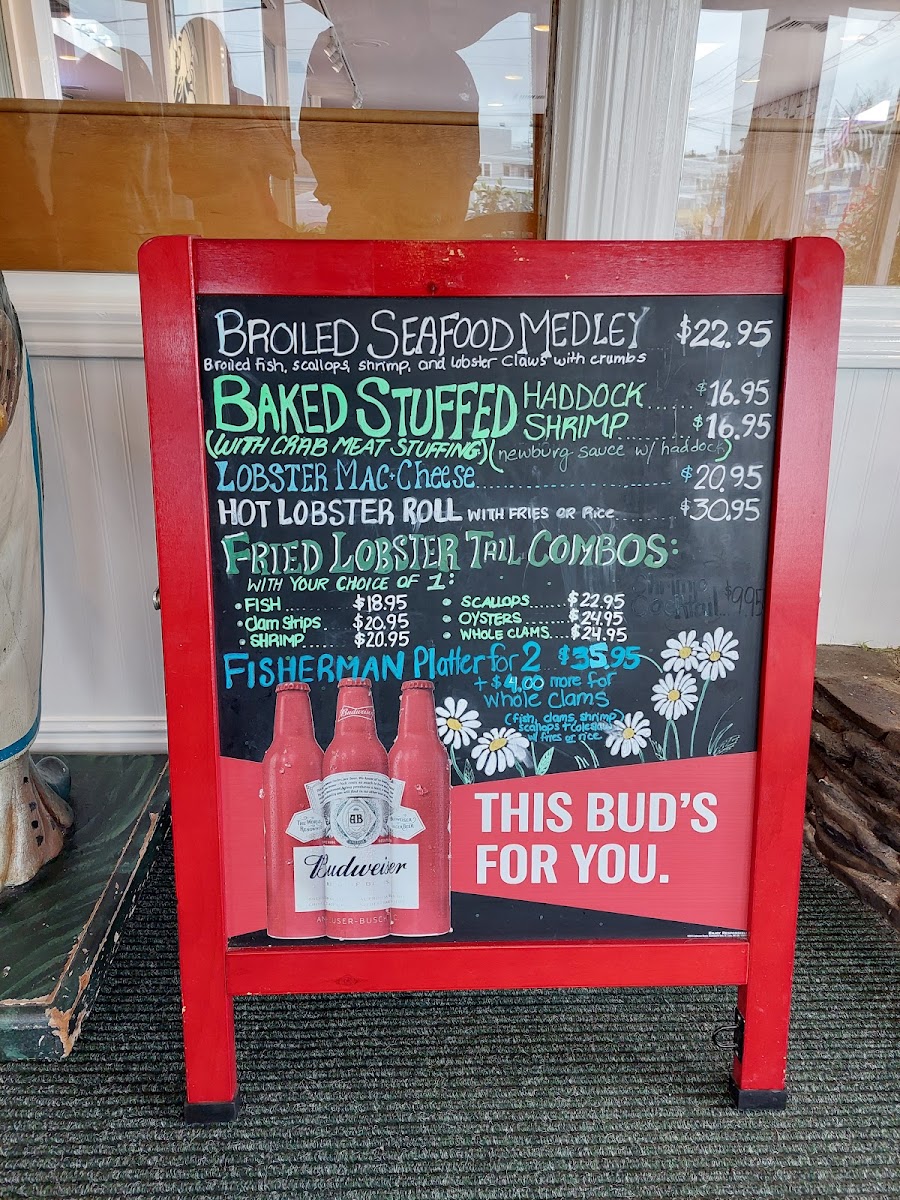 BROILED SEAFOOD MEDLEY $22.95
Broiled fish, scallops, shrimp, and lobster claws with crumbs
BAKED STUFFED HADDOCK......$16.95
SHRIMP......$16.95
(WITH CRAB MEAT STUFFING)(newburg sauce w/ haddock)
LOBSTER MAC+Cheese......$20.95
HOT LOBSTER ROLL WITH FRIES OR Rice......$30.95
FRIED LOBSTER TAIL COMBOS:
WITH YOUR CHOICE OF 1:
• FISH......$18.95 • SCALLOPS......$22.95
• Clam Strips..$20.95 • OYSTERS......$24.95
• SHRIMP......$20.95 • WHOLE CLAMS...$24.95
Shrimp
Cocktail $9.95
FISHERMAN Platter for 2 $35.95
+ $4.00 more for
whole clams
(fish, clams, shrimp,
scallops + coleslaw
w/ fries or rice
Budweiser
AB
Budweiser
ANHEUSER-BUSCH
THIS BUD'S
FOR YOU.